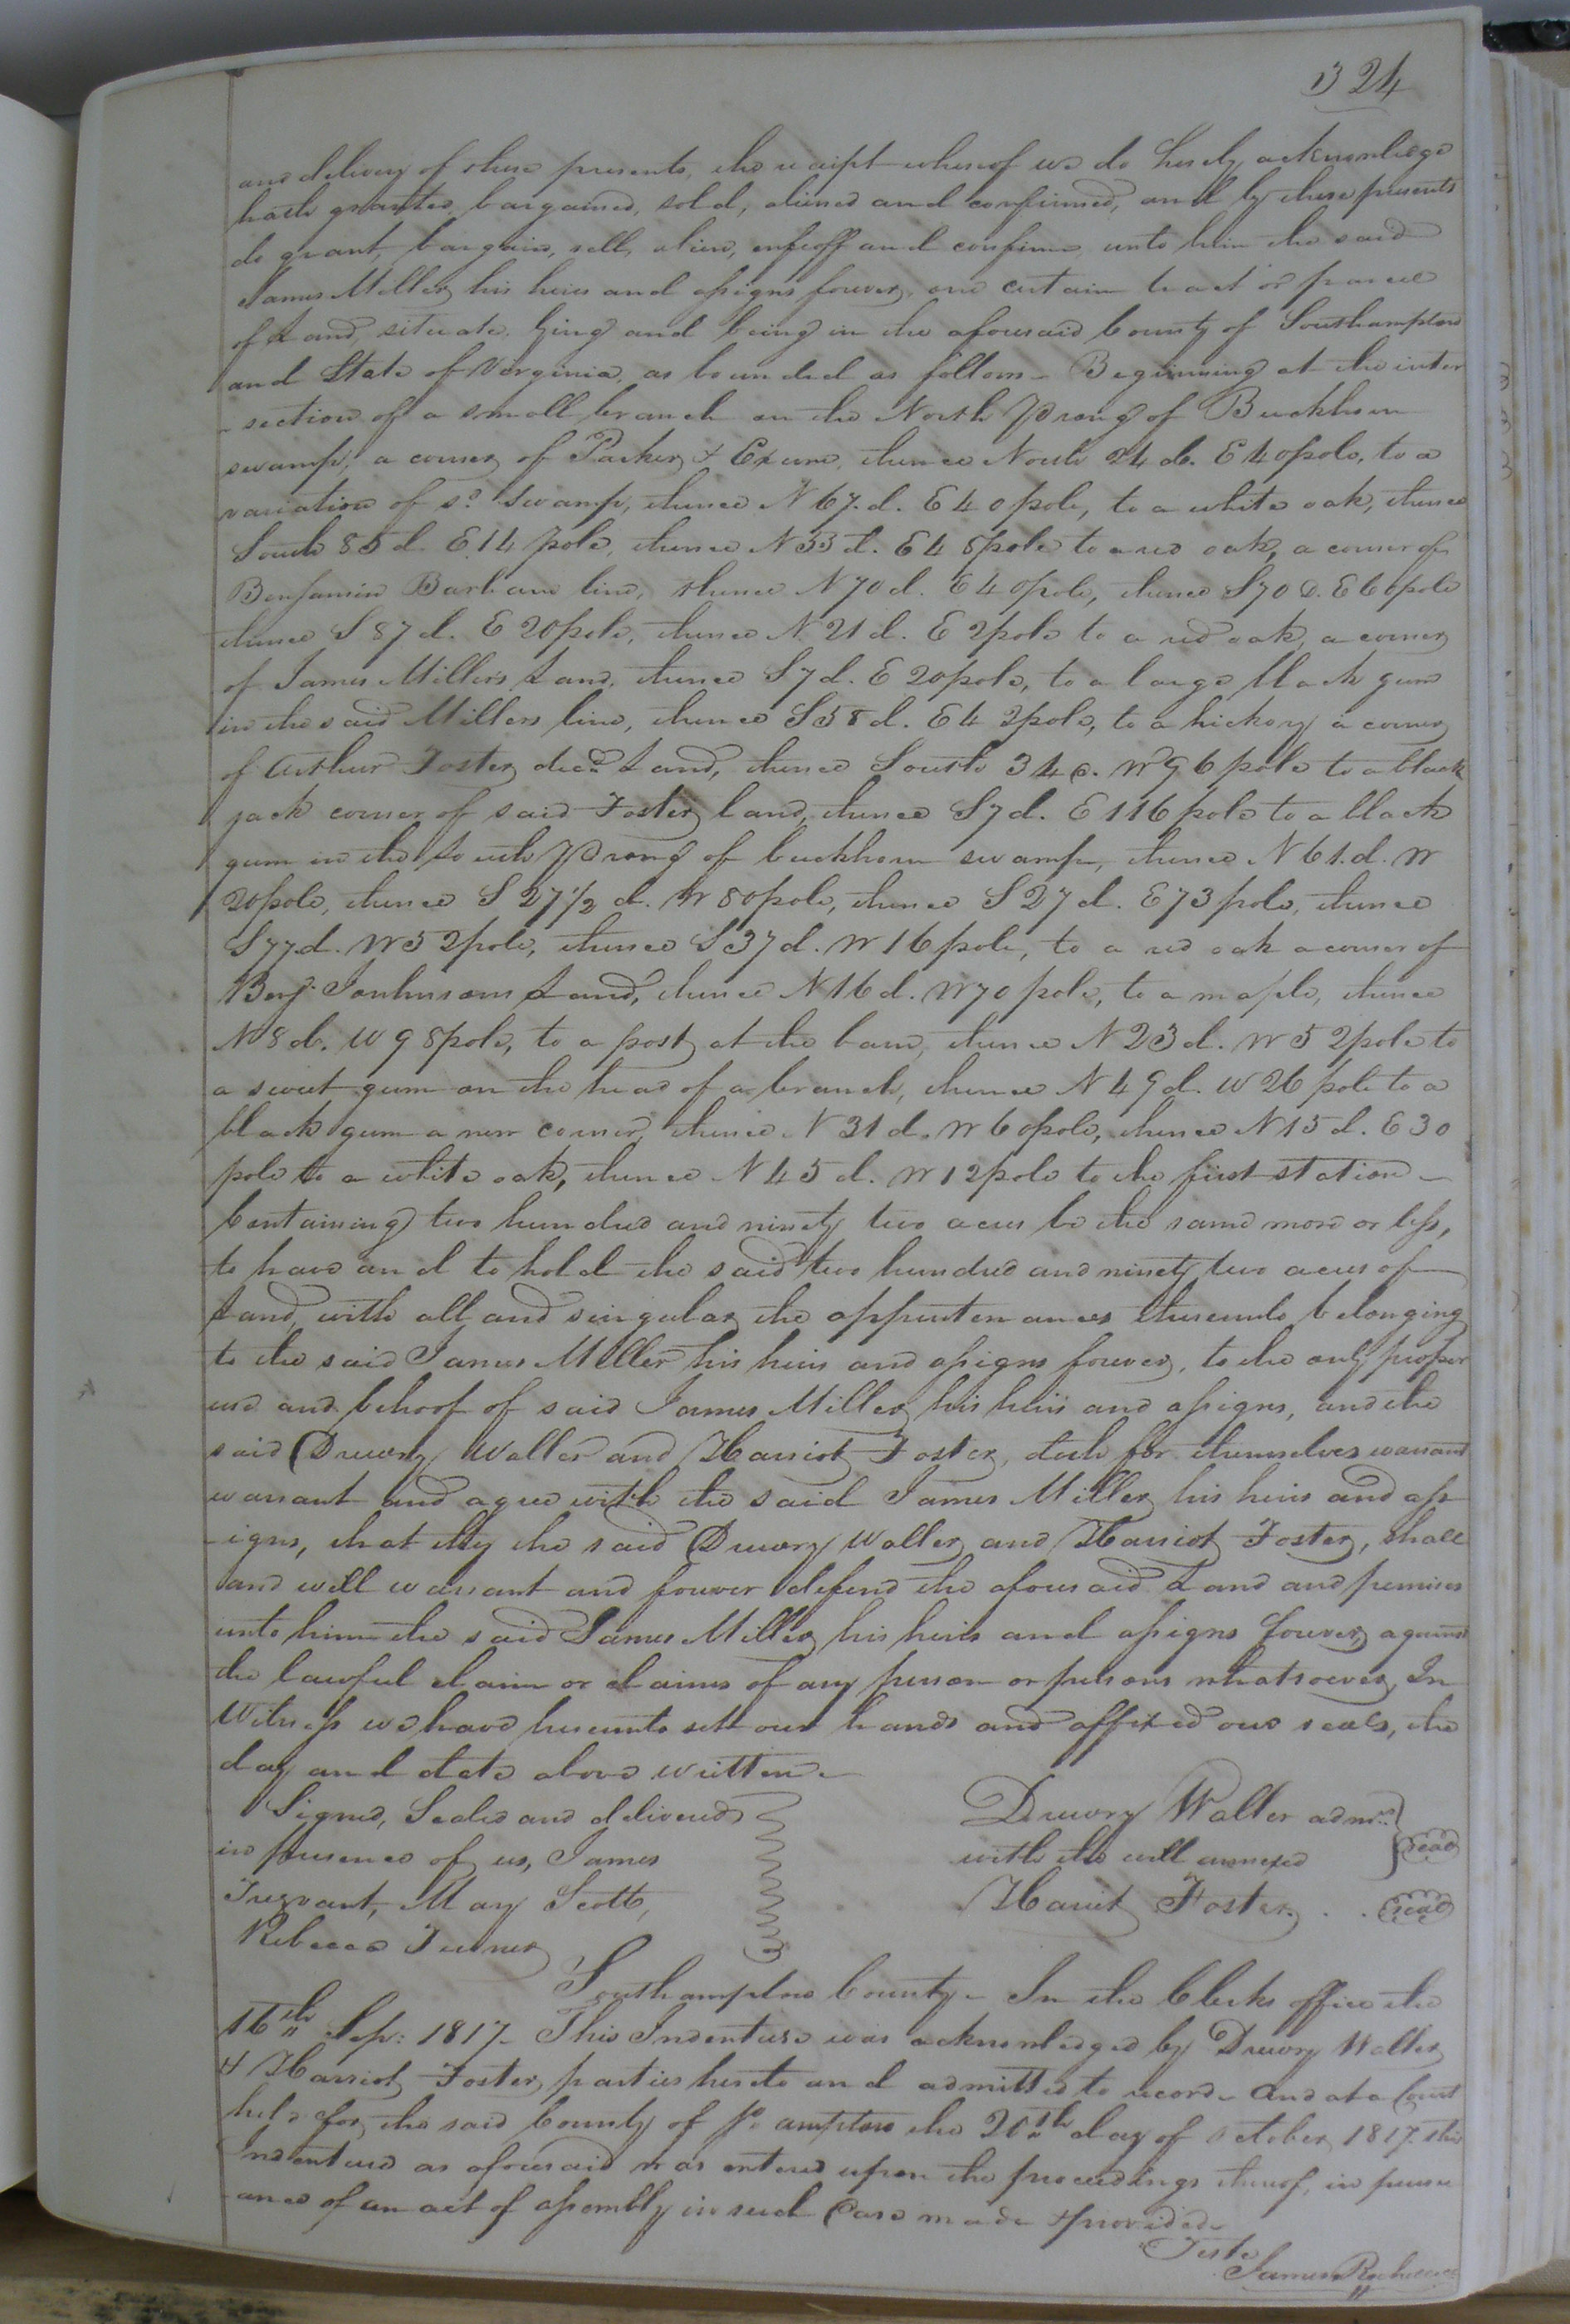 324
and delivery of these presents, the receipt whereof we do hereby acknowledge
hath granted, bargained, sold, aliened and confirmed, and by these presents
do grant, bargain, sell, alien, enfeoff and confirm unto him the said
James Miller, his heirs and assigns forever, one certain tract or parcel
of Land, situate, lying and being in the aforesaid County of Southampton
and State of Virginia, as bounded as follows - Beginning at the inter
-section of a small branch on the North Prong of Buckhorn
swamp, a corner of Parker & Exum, thence North 24 d. E 40 pole, to a
variation of sd. swamp, thence N 67. d. E 40 pole, to a white oak, thence
South 85 d. E 14 pole, thence N 33 d. E 48 pole to a red oak, a corner of
Benjamin Barham line, thence N 70 d. E 40 pole, thence S 70 d. E 60 pole
thence S 87 d. E 20 pole, thence N. 21 d. E 2 pole to a red oak, a corner
of James Millers Land, thence S 7 d. E 20 pole, to a large black gum
in the said Millers line, thence S 58 d. E 42 pole, to a hickory a corner
of Arthur Foster, decd. Land, thence South 34 d. W 96 pole to a black
jack corner of said Foster land, thence S 7 d. E 116 pole to a black
gum in the South Prong of buckhorn swamp, thence N 61. d. W
20 pole, thence S 27 1/2 d. W 80 pole, thence S 27 d. E 73 pole, thence
S 77 d. W 52 pole, thence S 37 d. W 16 pole, to a red oak a corner of
Benj. Jonhnsons Land, thence N 16 d. W 70 pole, to a maple, thence
N 8 d. W 98 pole, to a post at the barn, thence N 23 d. W 52 pole to
a sweet gum on the head of a branch, thence N 49 d. W 26 pole to a
black gum a new corner, thence N 31 d. W 60 pole, thence N 15 d. E 30
pole to a white oak, thence N 45 d. W 12 pole to the first station -
Containing two hundred and ninety two acres be the same more or less,
to have and to hold the said two hundred and ninety two acres of
Land, with all and singular the appurtenances thereunto belonging
to the said James Miller his heirs and assigns forever, to the only proper
use and behoof of said James Miller, his heirs and assigns, and the
said Drewry Waller and Harriot Foster, doth for themselves warrant
warrant and agree with the said James Miller his heirs and ass
-igns, that they the said Drewry Waller and Harriot Foster, shall
and will warrant and forever defend the aforesaid Land and premises
unto him the said James Miller, his heirs and assigns forever, against
the lawful claim or claims of any person or persons whatsoever, In
Witness we have hereunto sett our hands and affixed our seals, the
day and date above written -
Signed, Sealed and delivered
in presence of us, James
Trezvant, Mary Scott,
Rebecca Turner
Drewry Waller admr.
with the will annexed seal
Harriot Foster . . seal
Southampton County - In the Clerks office the
16th Sep: 1817 - This Indenture was acknowledged by Drewry Waller
& Harriot Foster, parties hereto and admitted to record - And at a Court
held for the said County of So. ampton the 20th day of October, 1817. this
Indenture as aforesaid was entered upon the proceedings thereof, in pursu
-ance of an act of assembly in such Case made & provided -
Teste
James Rochelle